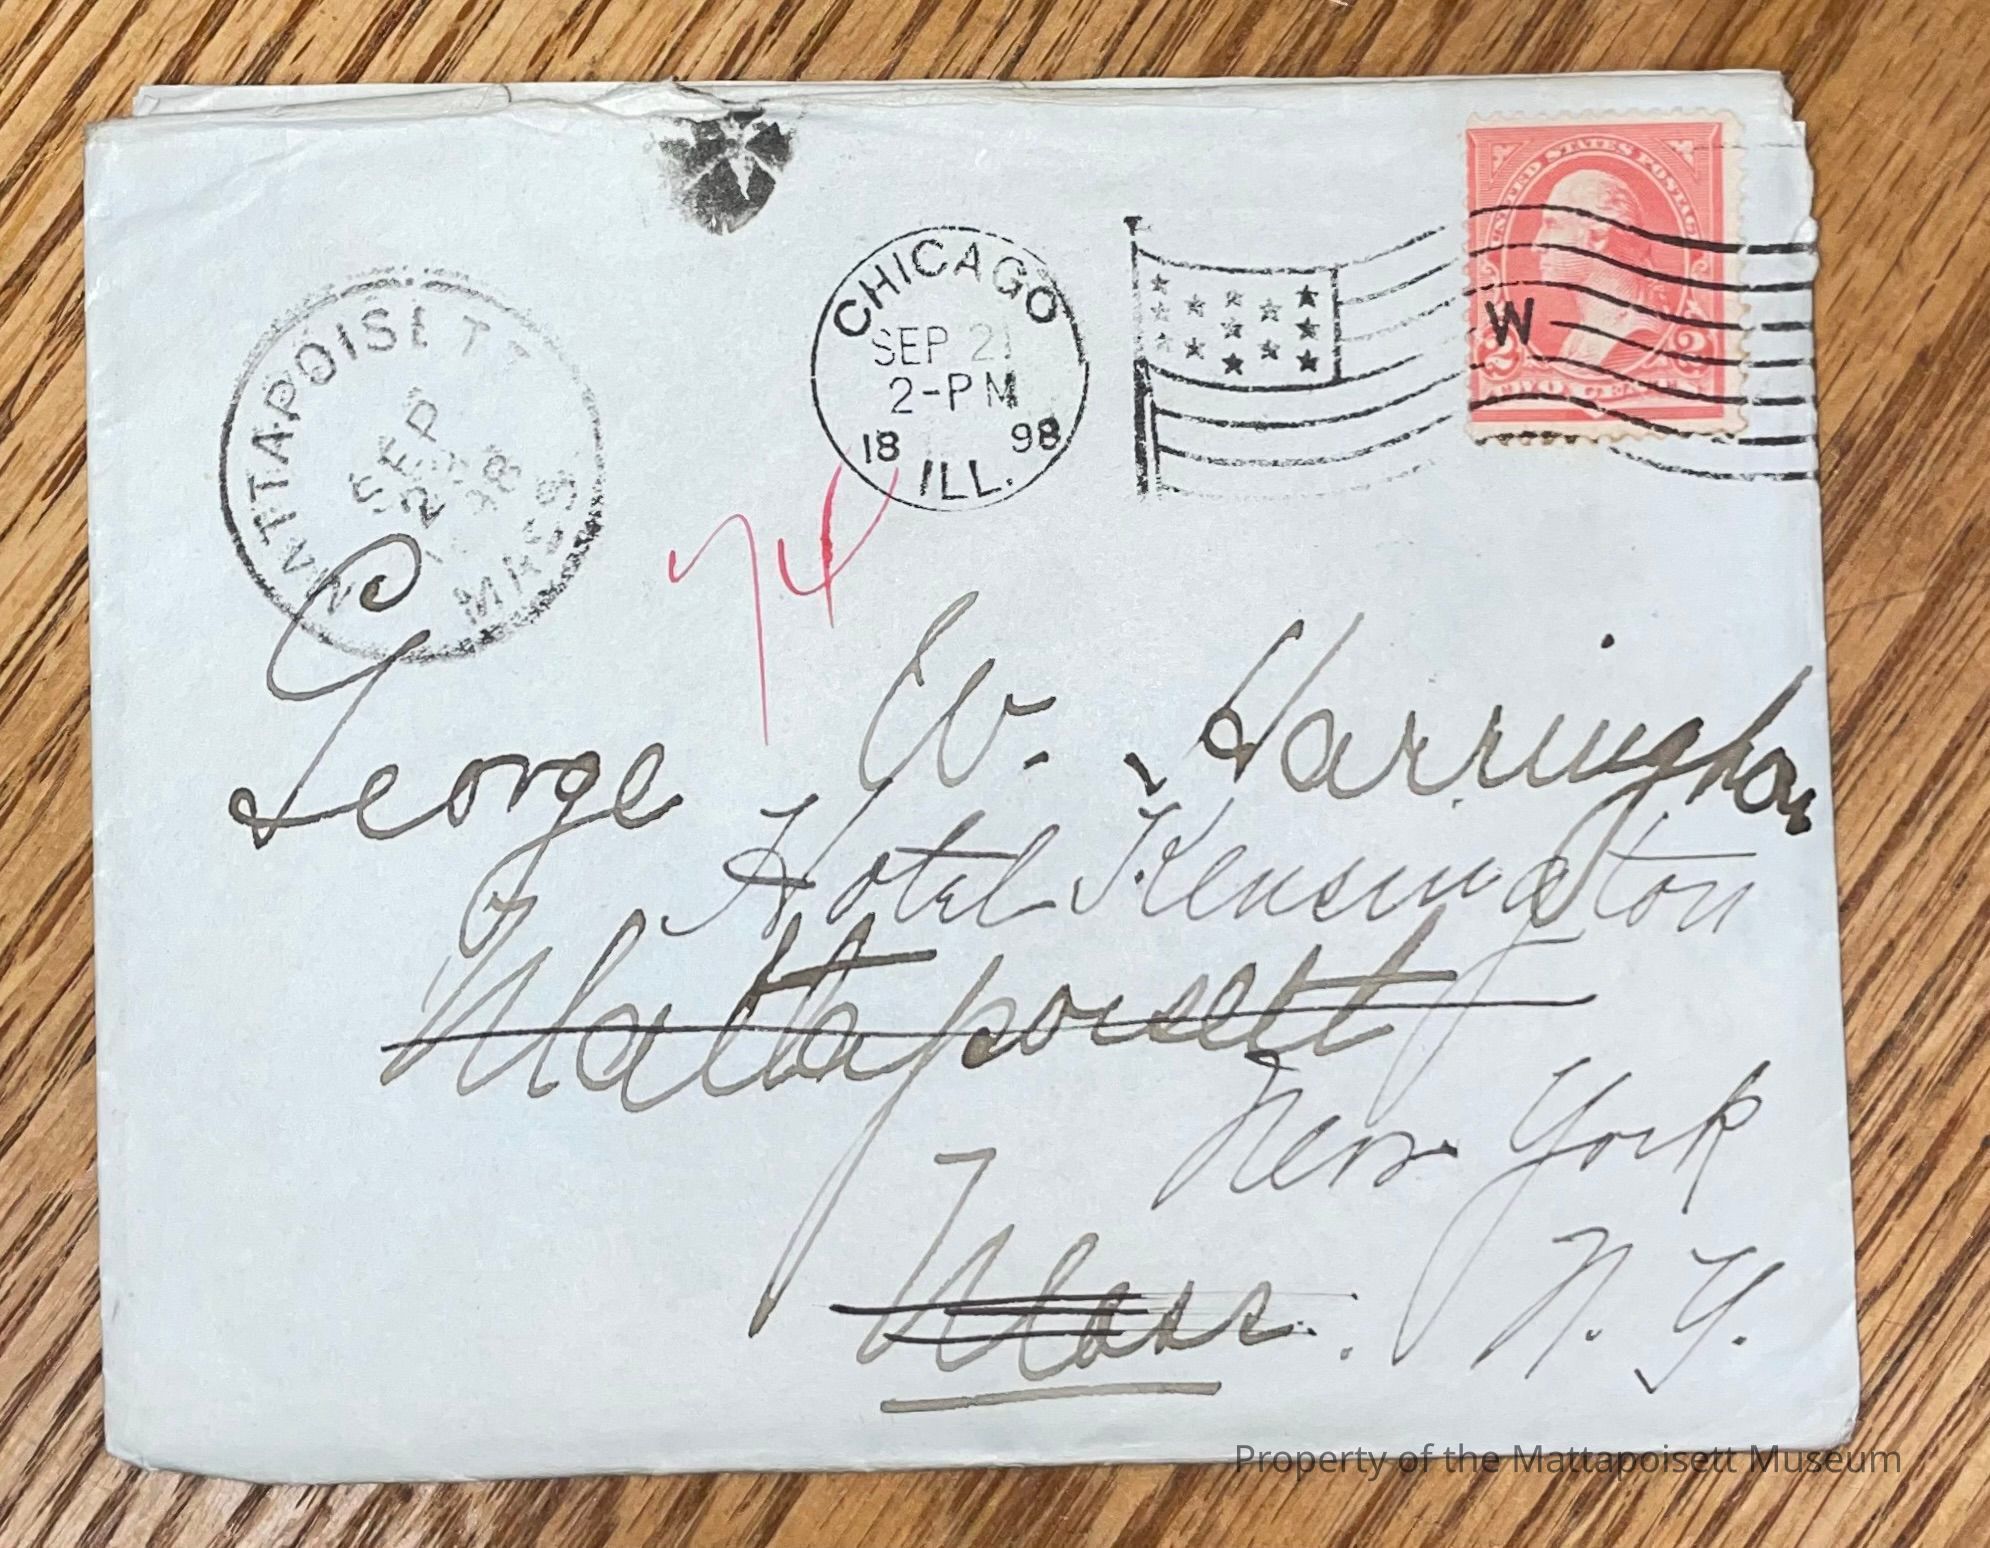 UNITED STATES POSTAGE
W
2 2
CHICAGO
SEP 21
2-PM
18 98
ILL.
MATTAPOISETT
SEP
2
1898
MASS
74
George W. Harrington
Hotel Kensington
Mattapoisett
New York
Mass.
N. Y.
Property of the Mattapoisett Museum